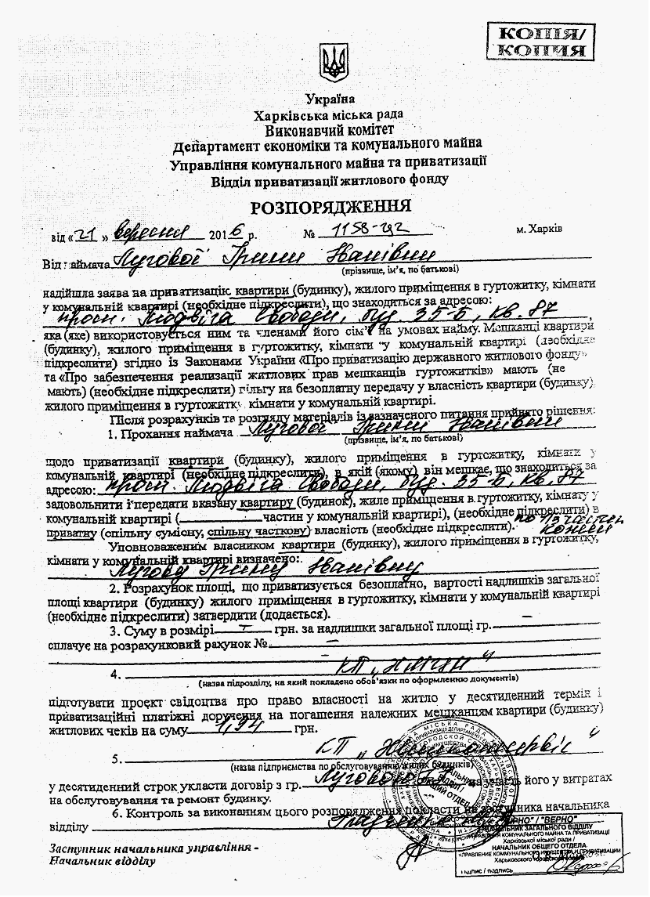 КОПІЯ/
КОПИЯ
Україна
Харківська міська рада
Виконавчий комітет
Департамент економіки та комунального майна
Управління комунального майна та приватизації
Відділ приватизації житлового фонду
РОЗПОРЯДЖЕННЯ
від «21» вересня 2016 р. № 1158-292 м. Харків
Від наймача Лугової Ірини Іванівни
(прізвище, ім'я, по батькові)
надійшла заява на приватизацію квартири (будинку), жилого приміщення в гуртожитку, кімнати
у комунальній квартирі (необхідне підкреслити), що знаходиться за адресою:
просп. Людвіга Свободи, буд. 35-Б, кв. 87,
яка (яке) використовується ним та членами його сім'ї на умовах найму. Мешканці квартири
(будинку), жилого приміщення в гуртожитку, кімнати у комунальній квартирі (необхідне
підкреслити) згідно із Законами України «Про приватизацію державного житлового фонду»
та «Про забезпечення реалізації житлових прав мешканців гуртожитків» мають (не
мають) (необхідне підкреслити) пільгу на безоплатну передачу у власність квартири (будинку),
жилого приміщення в гуртожитку, кімнати в комунальній квартирі.
Після розрахунків та розгляду матеріалів із зазначеного питання прийнято рішення:
1. Прохання наймача Лугової Ірини Іванівни
(прізвище, ім'я, по батькові)
щодо приватизації квартири (будинку), жилого приміщення в гуртожитку, кімнати у
комунальній квартирі (необхідне підкреслити), в якій (якому) він мешкає, що знаходиться за
адресою: просп. Людвіга Свободи, буд. 35-Б, кв. 87
задовольнити і передати вказану квартиру (будинок), жиле приміщення в гуртожитку, кімнату у
комунальній квартирі ( частин у комунальній квартирі), (необхідне підкреслити) в
приватну (спільну сумісну, спільну часткову) власність (необхідне підкреслити). по 1/3 частині
кожній
Уповноваженим власником квартири (будинку), жилого приміщення в гуртожитку,
кімнати у комунальній квартирі визначено:
Лугову Ірину Іванівну
2. Розрахунок площі, що приватизується безоплатно, вартості надлишків загальної
площі квартири (будинку) жилого приміщення в гуртожитку, кімнати у комунальній квартирі
(необхідне підкреслити) затвердити (додається).
3. Суму в розмірі — грн. за надлишки загальної площі гр. —
сплачує на розрахунковий рахунок № —
4. КП
(назва підрозділу, на який покладено обов'язки по оформленню документів)
підготувати проєкт свідоцтва про право власності на житло у десятиденний термін і
приватизаційні платіжні доручення на погашення належних мешканцям квартири (будинку)
житлових чеків на суму 1,94 грн.
5. КП „Жилкомсервіс“
(назва підприємства по обслуговуванню жилих будинків)
у десятиденний строк укласти договір з гр. Луговою на участь його у витратах
на обслуговування та ремонт будинку.
6. Контроль за виконанням цього розпорядження покласти на заступника начальника
відділу
Заступник начальника управління -
Начальник відділу
"ВІРНО" / "ВЕРНО"
НАЧАЛЬНИК ЗАГАЛЬНОГО ВІДДІЛУ
УПРАВЛІННЯ КОМУНАЛЬНОГО МАЙНА ТА ПРИВАТИЗАЦІЇ
Харківської міської ради /
НАЧАЛЬНИК ОБЩЕГО ОТДЕЛА
УПРАВЛЕНИЕ КОММУНАЛЬНОГО ИМУЩЕСТВА И ПРИВАТИЗАЦИИ
Харьковского городского
ПІДПИС / ПОДПИСЬ